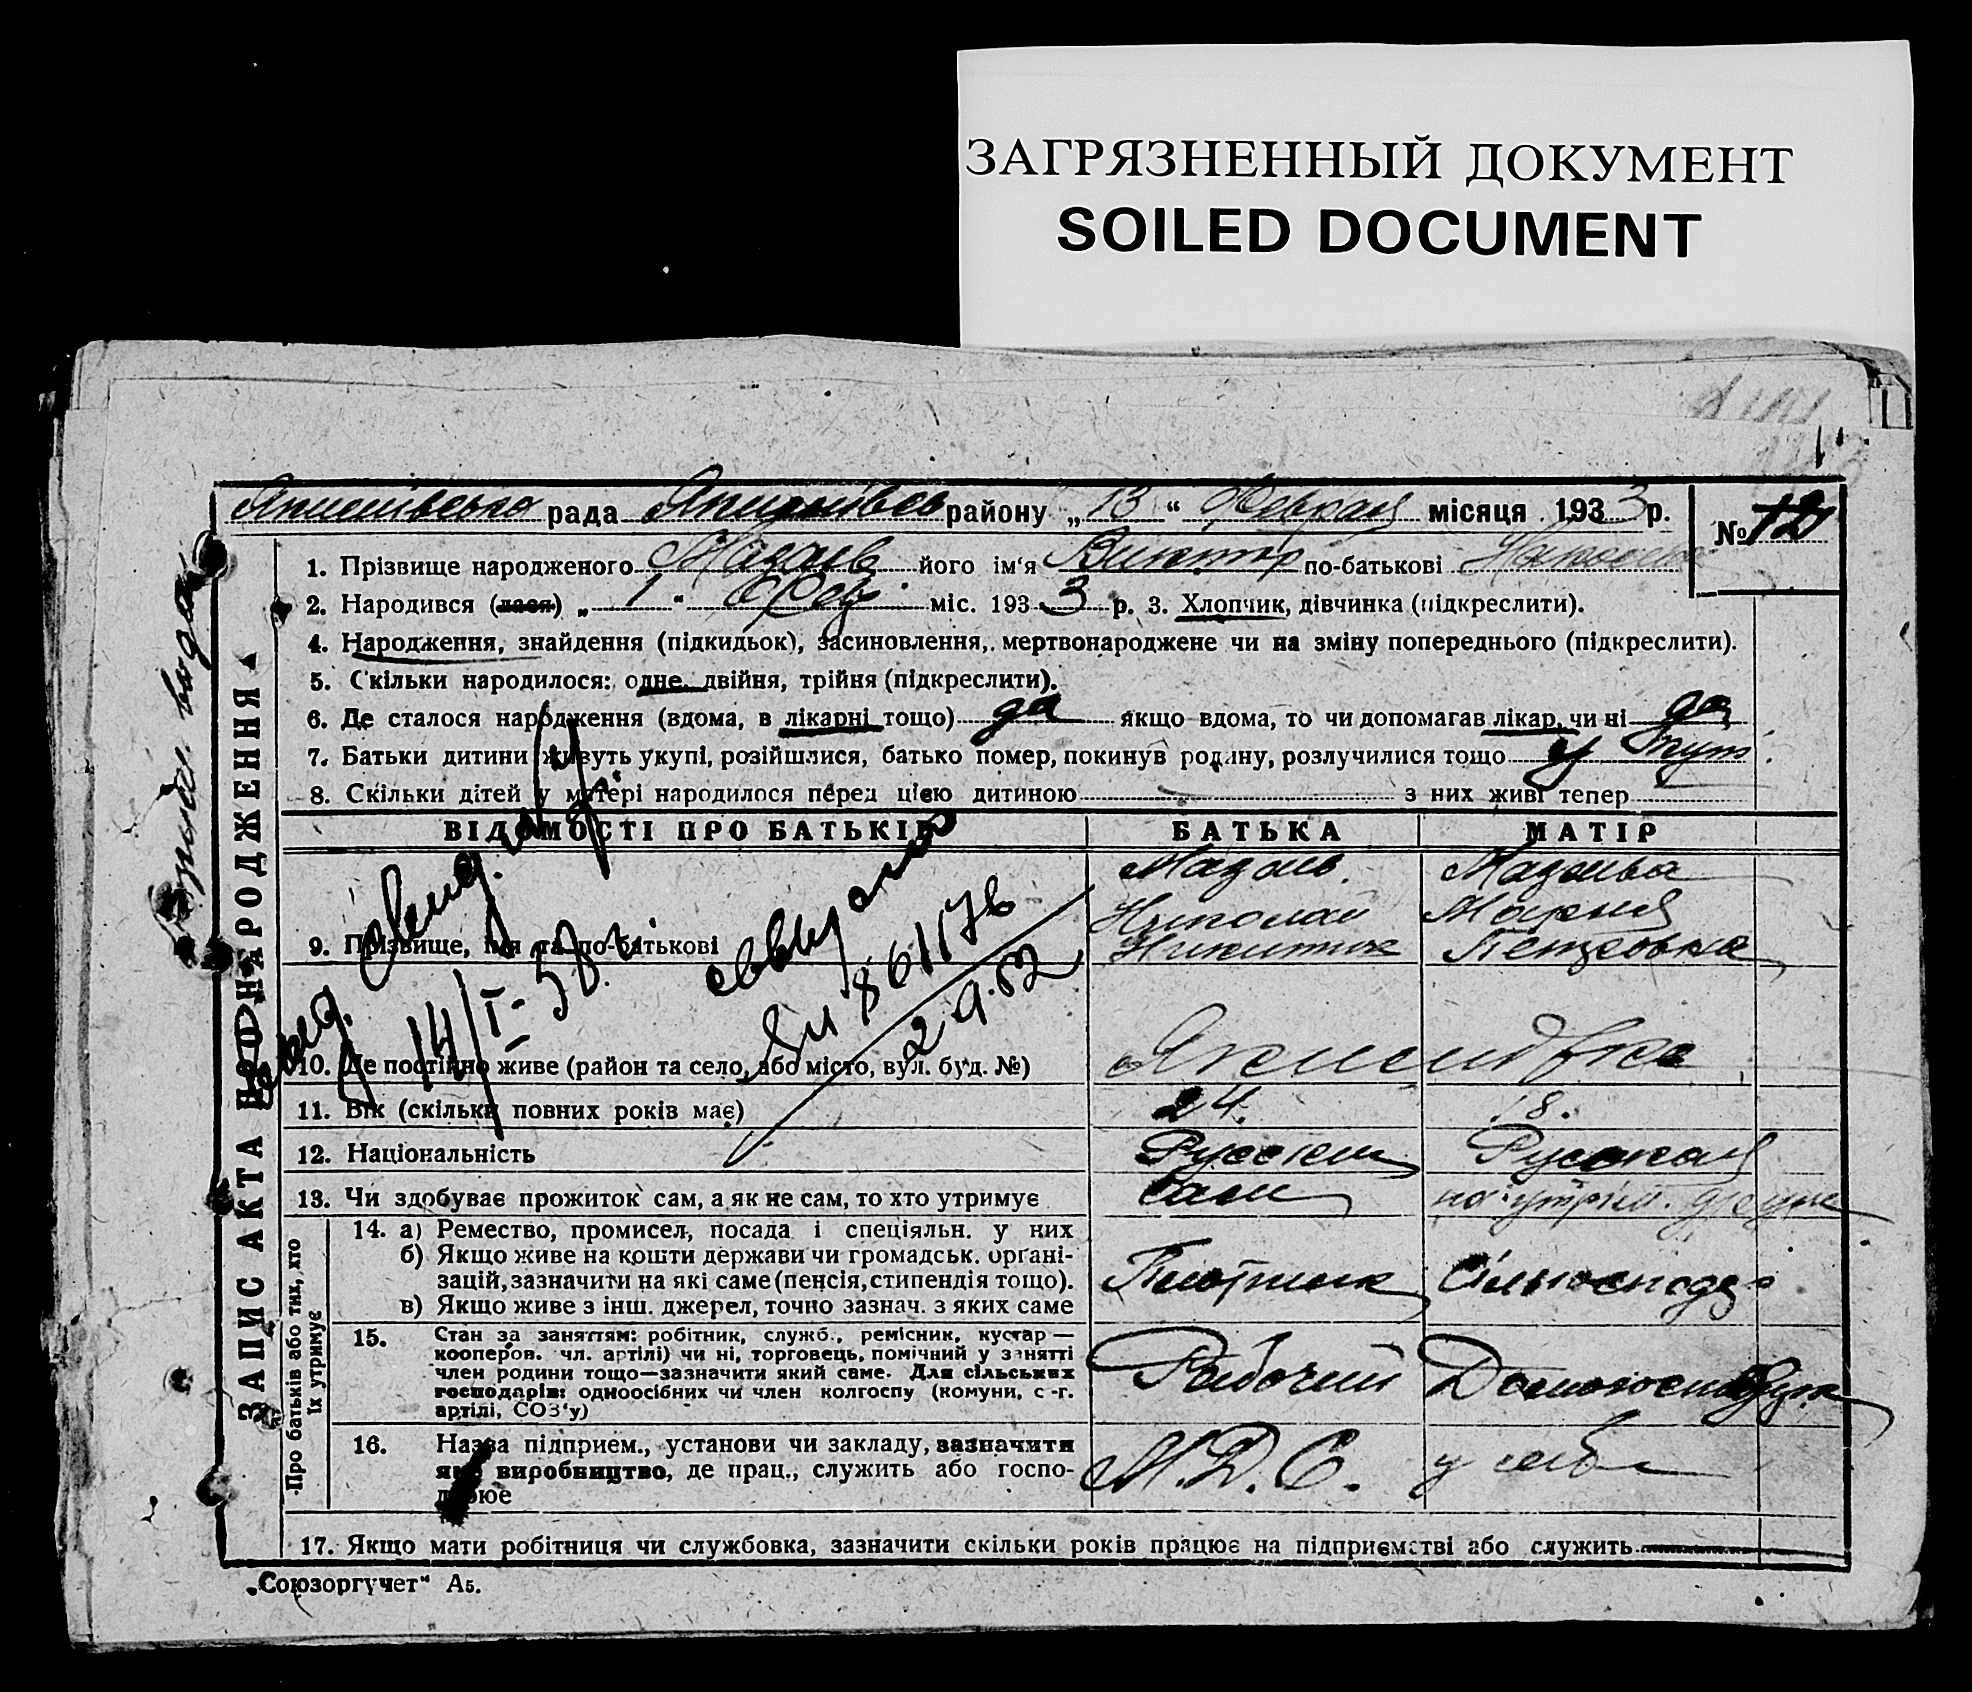 ЗАГРЯЗНЕННЫЙ ДОКУМЕНТ
SOILED DOCUMENT
рада району „13“ місяця 1933 р. №12
1. Прізвище народженого його ім'я Виктор по-батькові
2. Народився (лася) „1“ Фев міс. 1933 р. 3. Хлопчик, дівчинка (підкреслити).
4. Народження, знайдення (підкидьок), засиновлення, мертвонароджене чи на зміну попереднього (підкреслити).
5. Скільки народилося: одне, двійня, трійня (підкреслити).
6. Де сталося народження (вдома, в лікарні тощо) да якщо вдома, то чи допомагав лікар, чи ні да
7. Батьки дитини живуть укупі, розійшлися, батько помер, покинув родину, розлучилися тощо
8. Скільки дітей у матері народилося перед цією дитиною з них живі тепер
ВІДОМОСТІ ПРО БАТЬКІВ БАТЬКА МАТІР
Николай Мария
9. Прізвище, ім'я та по-батькові Никитич Петровна
14/I-58 г.
861176
2.9.52
10. Де постійно живе (район та село, або місто, вул. буд. №)
11. Вік (скільки повних років має) 24. 18.
12. Національність Русский Русская
13. Чи здобуває прожиток сам, а як не сам, то хто утримує Сам
14. а) Ремество, промисел, посада і спеціяльн. у них
б) Якщо живе на кошти держави чи громадськ. органі-
зацій, зазначити на які саме (пенсія, стипендія тощо). Плотник
в) Якщо живе з інш. джерел, точно зазнач. з яких саме
15. Стан за заняттям: робітник, служб., ремісник, кустар —
кооперов. чл. артілі) чи ні, торговець, помічний у занятті
член родини тощо—зазначити який саме. Для сільських Рабочий
господарів: одноосібних чи член колгоспу (комуни, с-г.
артілі, СОЗ'у)
16. Назва підприєм., установи чи закладу, зазначити
яке виробництво, де прац., служить або госпо- М.Д.С. у себе
дарює
17. Якщо мати робітниця чи службовка, зазначити скільки років працює на підприємстві або служить
„Союзоргучет“ А5.
ЗАПИС АКТА ПРО НАРОДЖЕННЯ
Про батьків або тих, хто
їх утримує